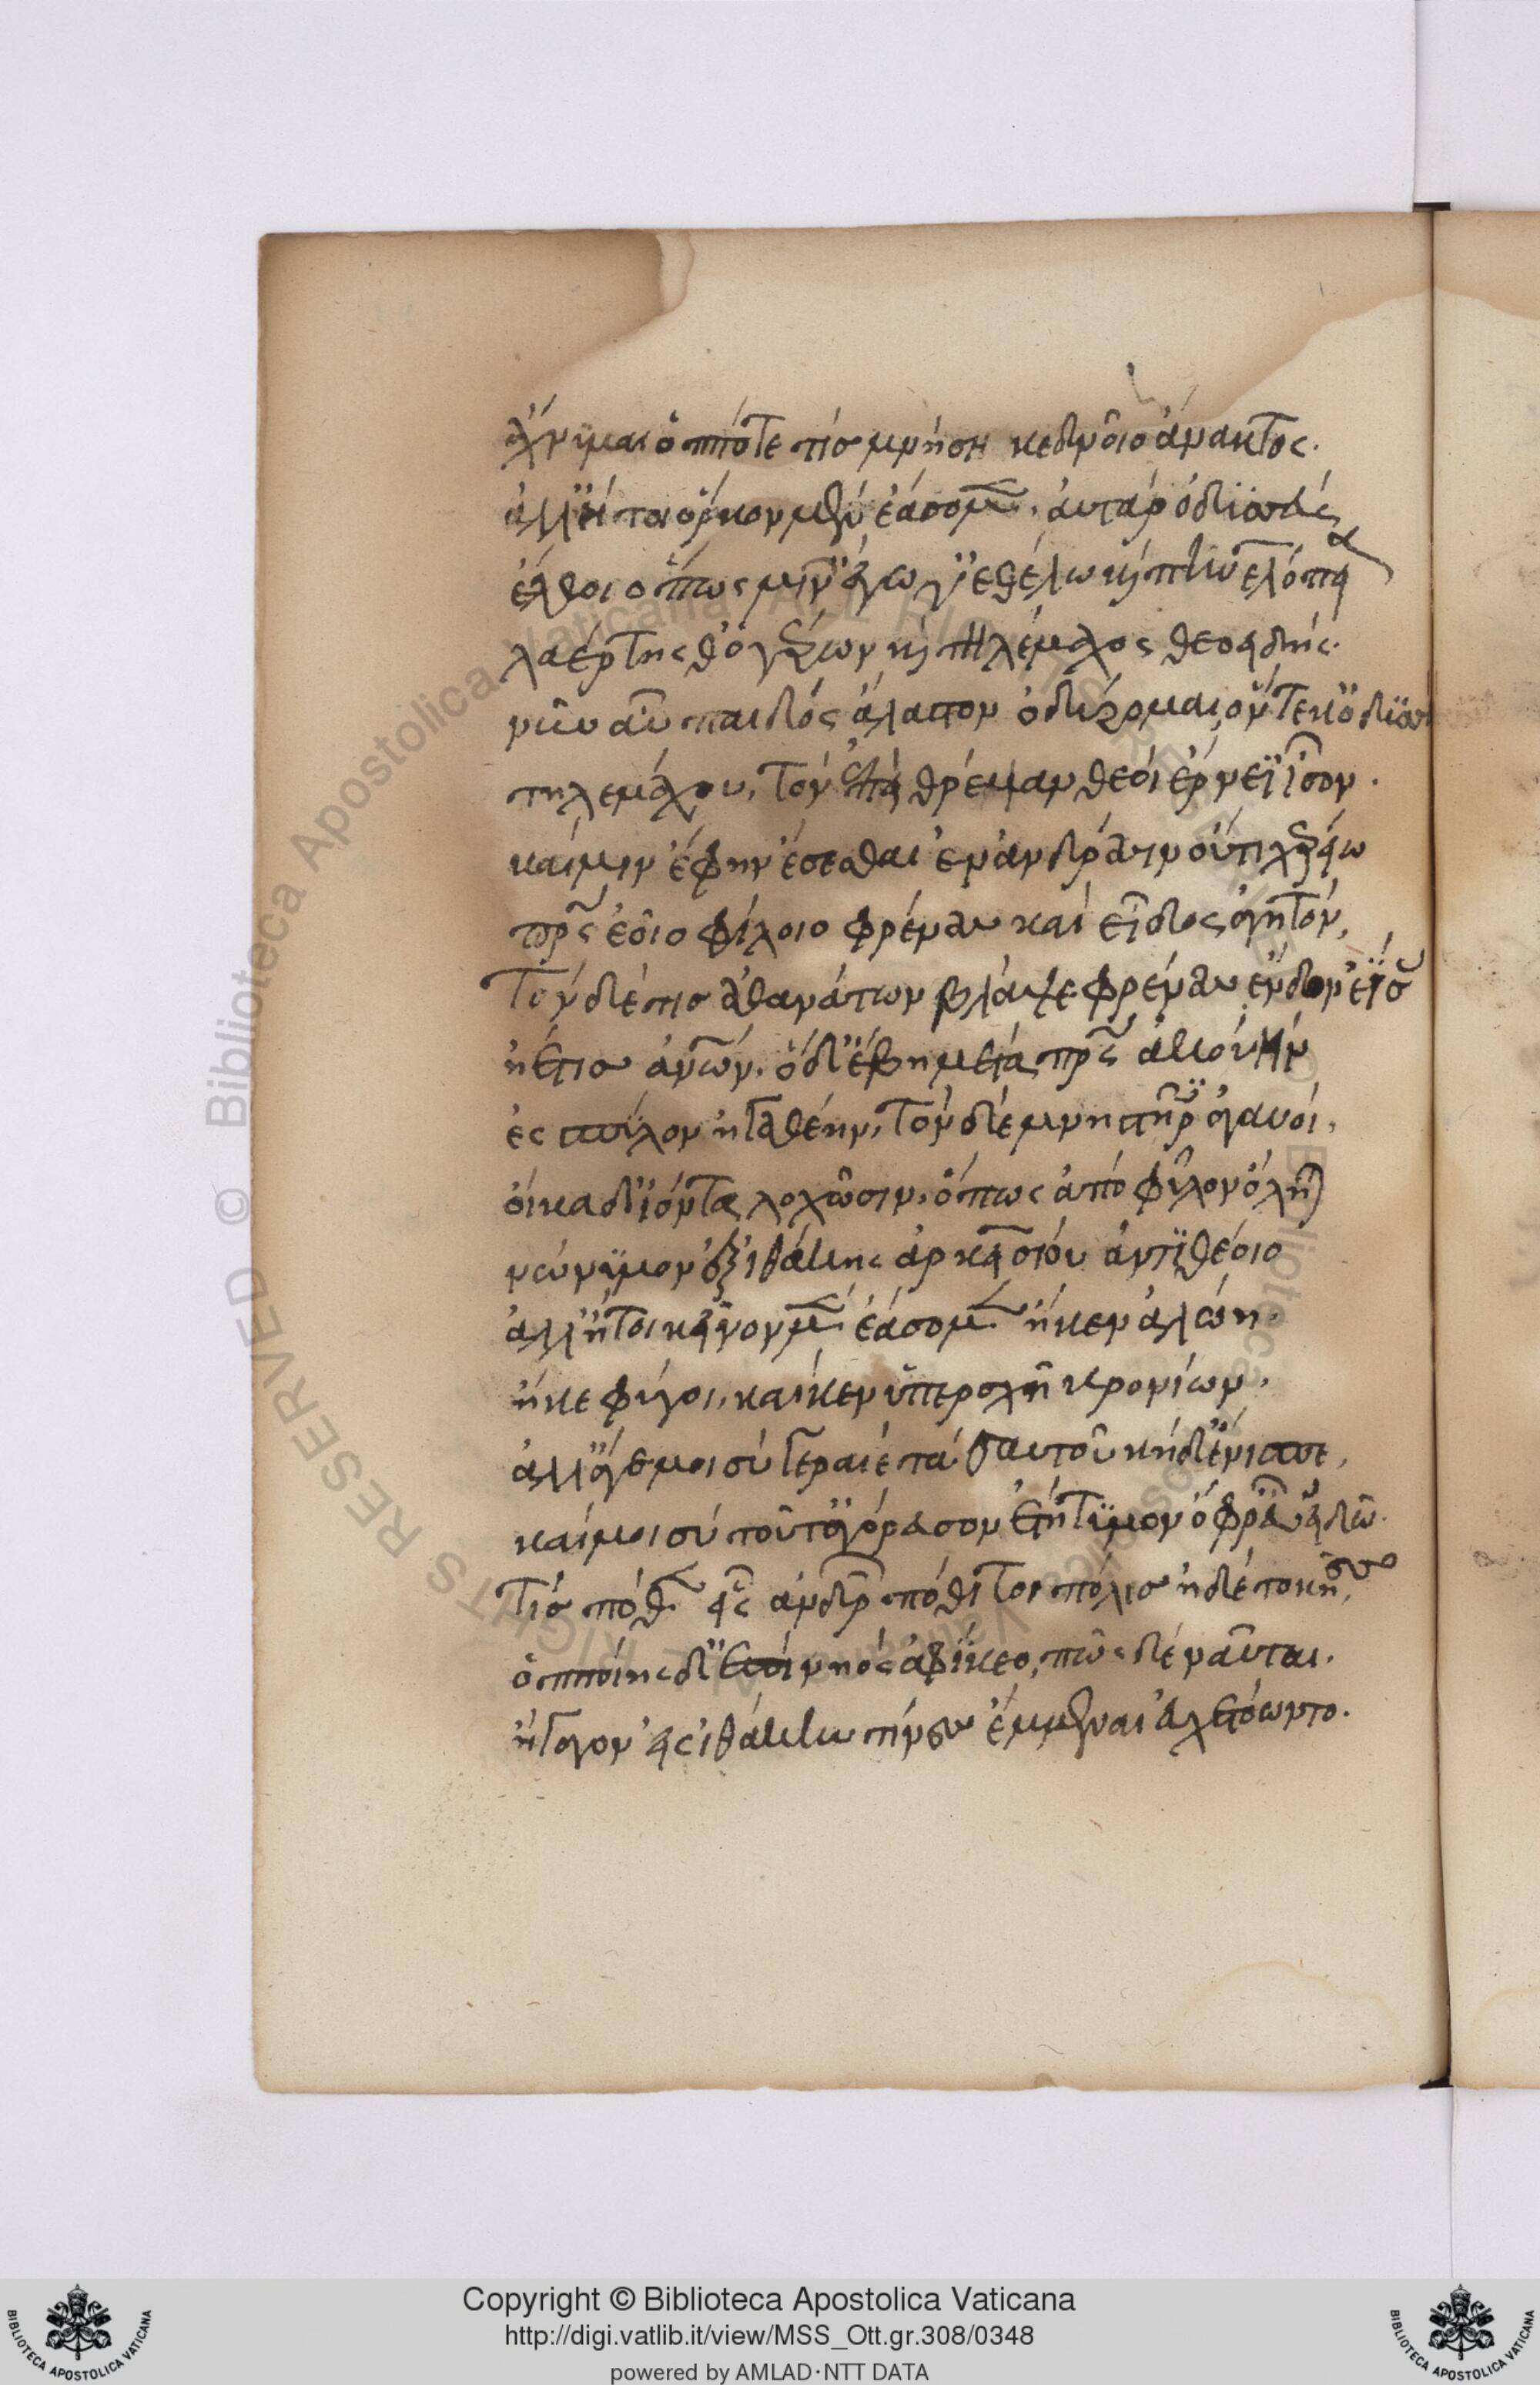 ἄχνυμαι ὁππότε τίσ μνήση κεδνοῖο ἄνακτος.
ἀλλ' ἤτοι ὅρκον μὲν ἐάσομεν. ἀυτάρ ὀδϋσσεύς
ἔλθοι ὅπως μιν ἔγωγ' ἐθέλω καὶ πηνελόπεια
λαέρτης θ' ὁ γέρων καὶ τηλέμαχος θεοειδής.
νῦν αὖ παιδός ἄλαστον ὀδύρομαι, ὃν τέκ' ὀδϋσσεύς
τηλεμάχου, τόν ἐπεί θρέψαν θεοί ἔρνεϊ ἶσον.
καί μιν ἔφην ἔσεσθαι ἐν ἀνδράσιν οὔτι χέρεια
πατρὸς ἑοῖο φίλοιο φρένας καί εἶδος ἀγητόν,
τόν δέ τισ ἀθανάτων βλάψε φρένας ἔνδον ἐΐσας
ἠέ τισ ἀνθρώπων. ὁ δ' ἔβη μετά πατρὸς ἀκουήν
ἐς πύλον ἠγαθέην, τόν δέ μνηστῆρες ἀγαυοί,
οἴκαδ' ἰόντα λοχῶσιν. ὅπως ἀπό φῦλον ὄληται
νώνϋμον ἐξ ἰθάκης ἀρκεισίου ἀντϊθέοιο
ἀλλ' ἤτοι κεῖνον μὲν ἐάσομεν ἤ κεν ἁλώη.
ἤ κε φύγοι, καί κεν ὑπέρσχη κρονίων.
ἀλλ' ἄγε μοι σύ γεραιέ τά σαυτοῦ κήδε' ἔνισπε,
καί μοι σύ τοῦτ' ἀγόρευσον ἐτήτϋμον ὄφρ' εὖ εἰδῶ.
τίσ πόθεν εἶς ἀνδρῶν πόθι τοι πόλισ ἠδέ τοκῆες,
ὁπποίης δ' ἐπί νηός ἀφΐκεο, πῶς δέ ναῦται.
ἤγαγον εἰς ἰθάκην τίνες ἔμμεναι εὐχετόωντο.
Copyright © Biblioteca Apostolica Vaticana
http://digi.vatlib.it/view/MSS_Ott.gr.308/0348
powered by AMLAD·NTT DATA
BIBLIOTECA APOSTOLICA VATICANA
BIBLIOTECA APOSTOLICA VATICANA